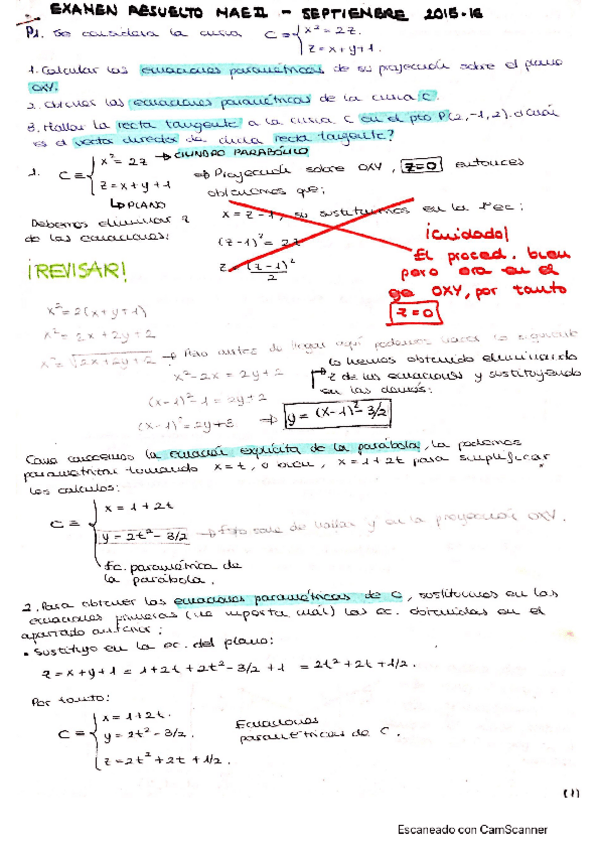 EXAMEN RESUELTO MAE II - SEPTIEMBRE 2015-16
P1. Se considera la curva C ≡ { x² = 2z.
z = x+y+1.
1. Calcular las ecuaciones paramétricas de su proyección sobre el plano
OXY.
2. Obtener las ecuaciones paramétricas de la curva C.
3. Hallar la recta tangente a la curva C en el pto P(2,-1,2). ¿Cuál
es el vector director de dicha recta tangente?
1. C ≡ { x² = 2z → CILINDRO PARABÓLICO
z = x+y+1
↳ PLANO
⇒ Proyección sobre OXY, z=0 entonces
obtenemos que:
Debemos eliminar z
de las ecuaciones:
x = z-1, su sustituimos en la 1ª ec:
(z-1)² = 2z
z = (z-1)²/2
¡Cuidado!
El proced. bien
pero era en el
eje OXY, por tanto
z=0
¡REVISAR!
x² = 2(x+y+1)
x² = 2x+2y+2
x = √2x+2y+2 → Pero antes de llegar aquí podemos hacer lo siguiente
x²-2x = 2y+2
(x-1)²-1 = 2y+2
(x-1)² = 2y+3 ⇒ y = (x-1)²-3/2
Lo hemos obtenido eliminando
z de las ecuaciones y sustituyendo
en las demás:
Como conocemos la ecuación explícita de la parábola, la podemos
parametrizar tomando x=t, o bien, x=1+2t para simplificar
los cálculos:
C ≡ { x = 1+2t
y = 2t²-3/2 → Esto sale de hallar y en la proyección OXY.
Ec. paramétrica de
la parábola.
2. Para obtener las ecuaciones paramétricas de C, sustituimos en las
ecuaciones primeras (no importa cuál) las ec. obtenidas en el
apartado anterior:
• Sustituyo en la ec. del plano:
z = x+y+1 = 1+2t+2t²-3/2+1 = 2t²+2t+1/2.
Por tanto:
C ≡ { x = 1+2t.
y = 2t²-3/2.
z = 2t²+2t+1/2.
Ecuaciones
paramétricas de C.
(1)
Escaneado con CamScanner